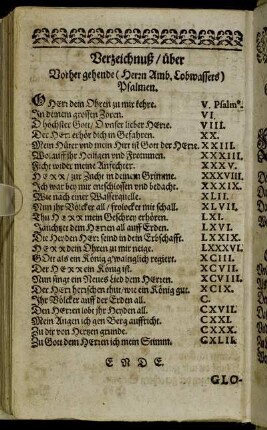 Verzeichnuß / über
Vorher gehende (Herrn Amb. Lobwassers)
Psalmen.
O HErr dein Ohren zu mir kehre. V. Psalm.
In deinem grossen Zoren. VI.
O höchster Gott / O unser lieber HErre. VIII.
Der Herr erhör dich in Gefahren. XX.
Mein Hüter und mein Hirt ist Gott der Herre. XXIII.
Wolauff ihr Heiligen und Frommen. XXXIII.
Ficht wider meine Anfechter. XXXV.
HERR / zur Zucht in deinem Grimme. XXXVIII.
Ich war bey mir entschlossen und bedacht. XXXIX.
Wie nach einer Wasserquelle. XLII.
Nun ihr Völcker all / frolocket mit schall. XLVII.
Thu HERR mein Geschrey erhören. LXI.
Jauchzet dem HErren all auff Erden. LXVI.
Die Heyden HErr seind in dein Erbschafft. LXXIX.
HERR dein Ohren zu mir neige. LXXXVI.
GOtt als ein König g'waltiglich regiert. XCIII.
Der HERR ein König ist. XCVII.
Nun singt ein Neues Lied dem HErren. XCVIII.
Der HErr herrschen thut / wie ein König gut. XCIX.
Ihr Völcker auff der Erden all. C.
Den HErren lobt ihr Heyden all. CXVII.
Mein Augen ich gen Berg auffricht. CXXI.
Zu dir von Herzen grunde. CXXX.
Zu Gott dem HErren ich mein Stimm. CXLII.
ENDE.
GLO-